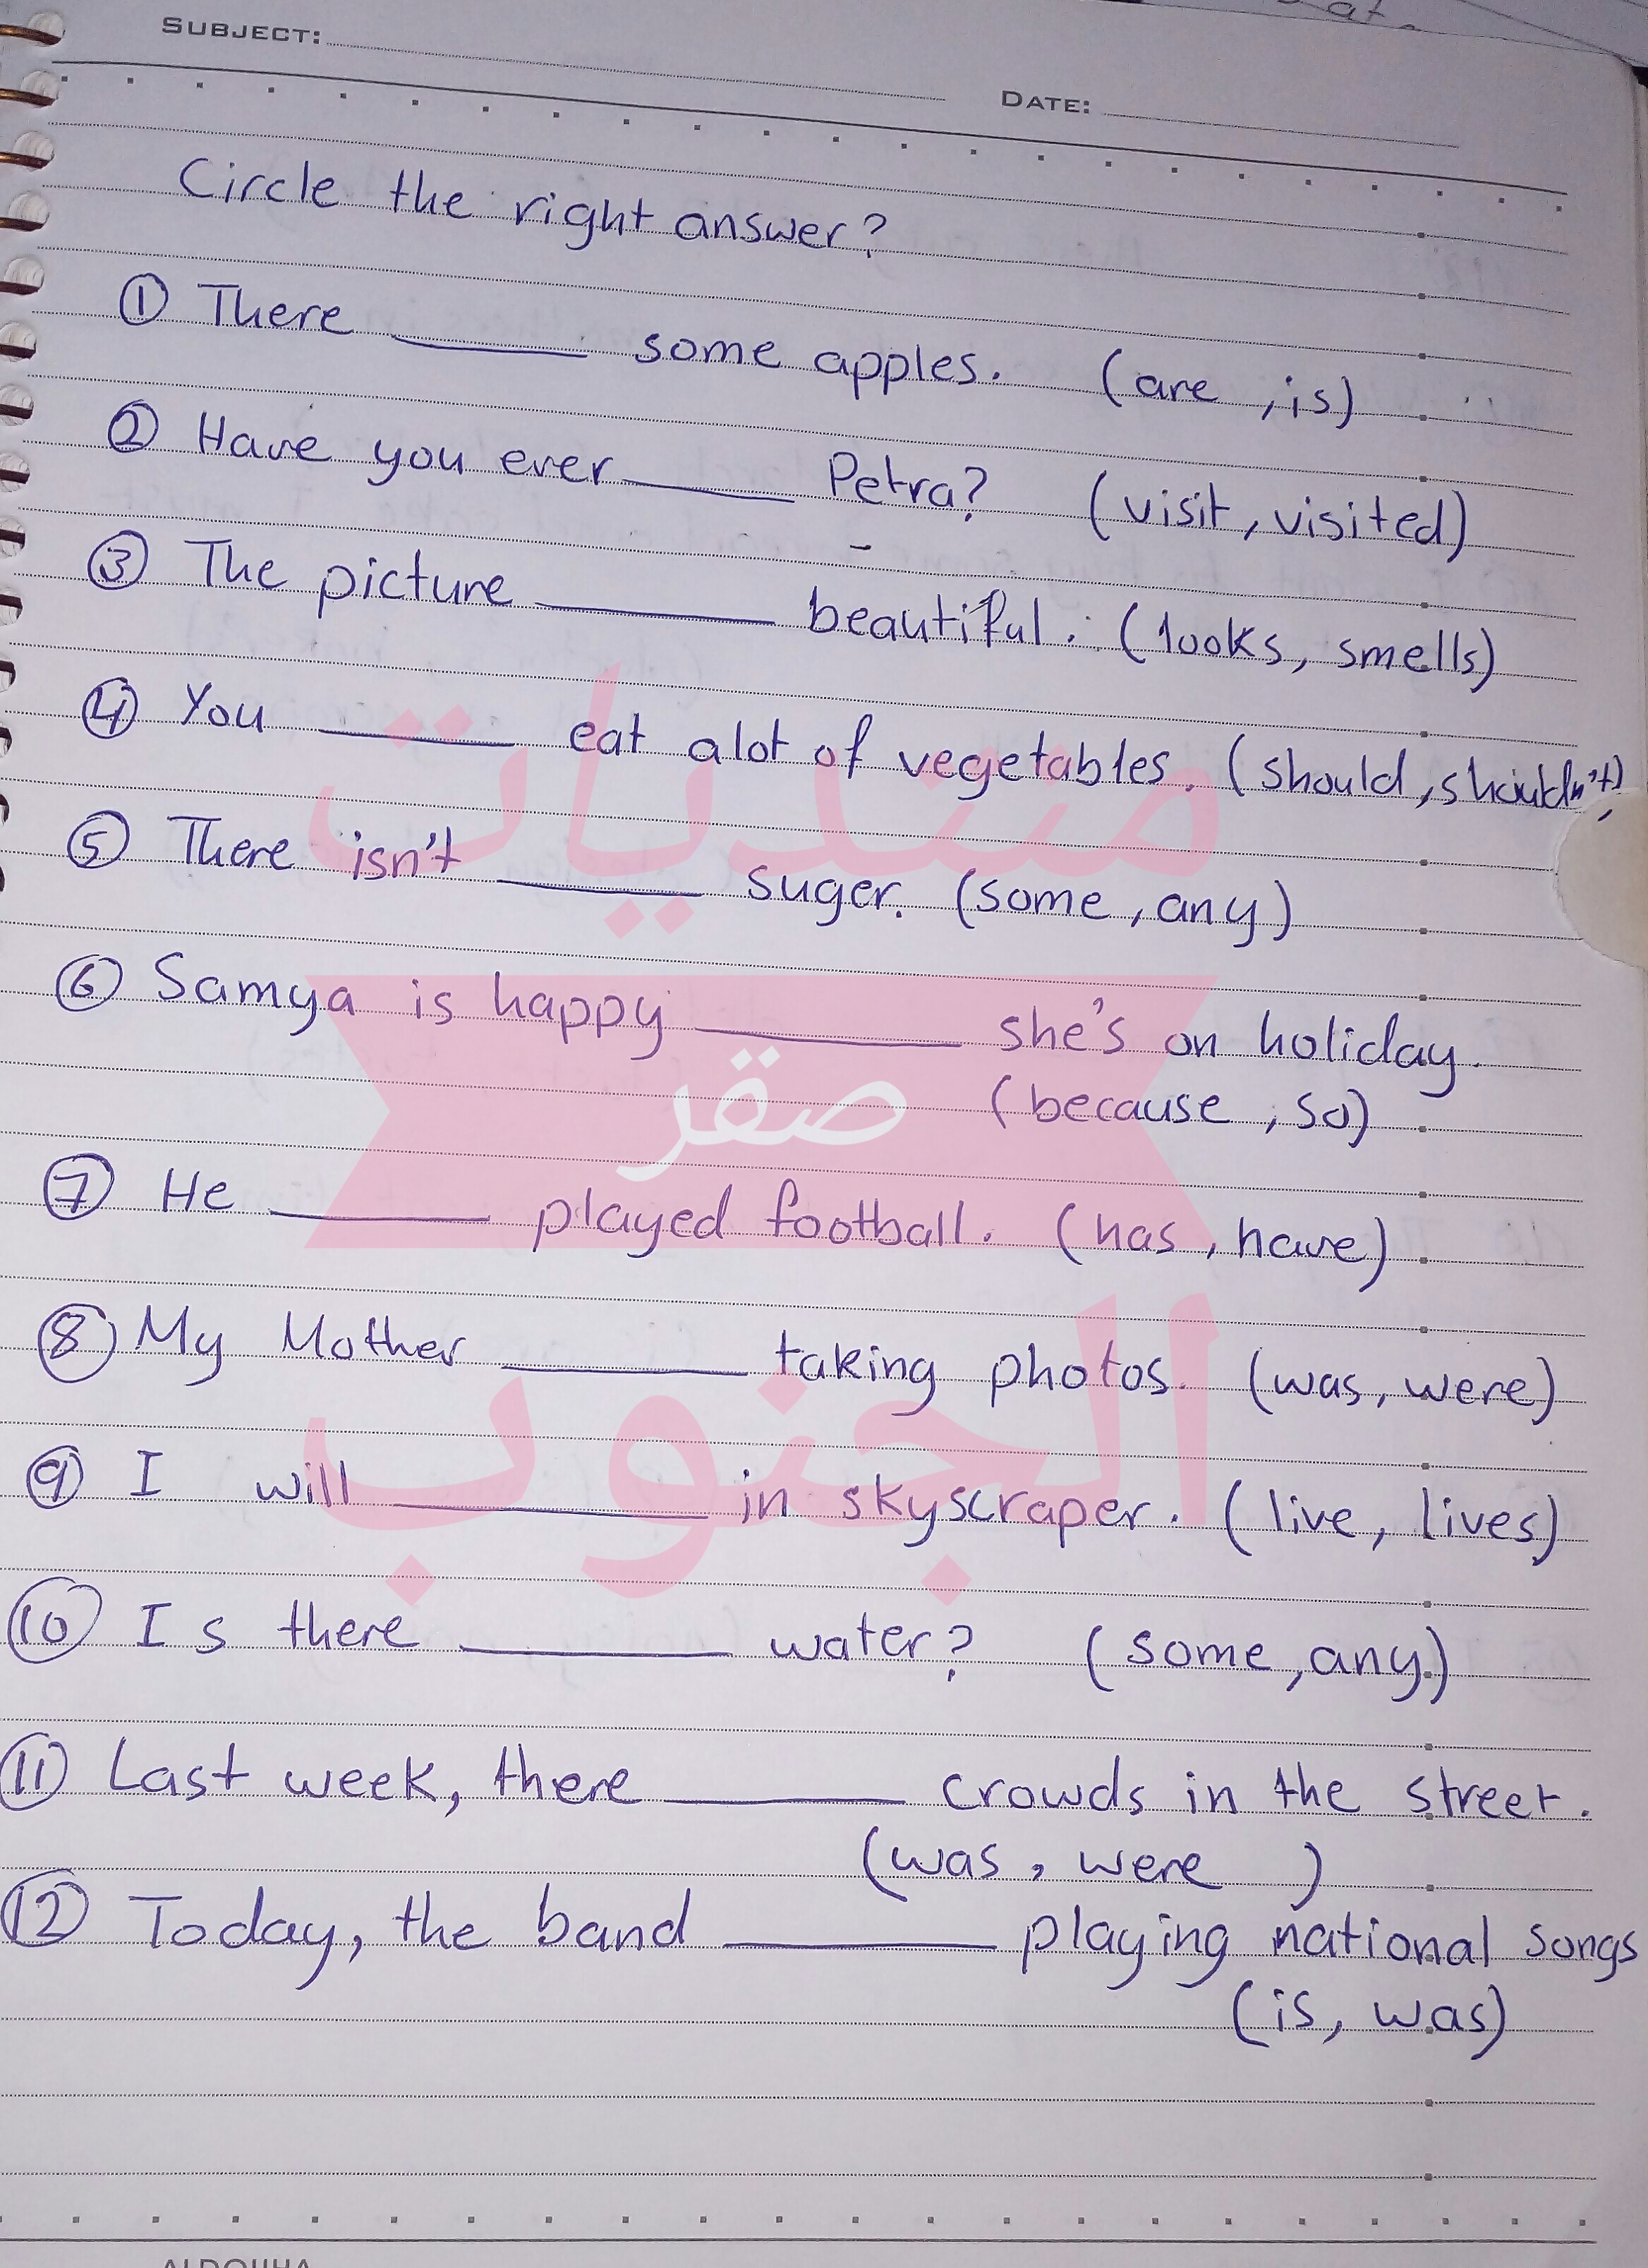 SUBJECT:
DATE:
Circle the right answer?
① There ______ some apples. (are , is)
② Have you ever ______ Petra? (visit, visited)
③ The picture ______ beautiful. (looks, smells)
④ You ______ eat alot of vegetables. (should, shouldn't)
⑤ There isn't ______ suger. (some, any)
⑥ Samya is happy ______ she's on holiday.
(because , so)
⑦ He ______ played football. (has , have)
⑧ My Mother ______ taking photos. (was, were)
⑨ I will ______ in skyscraper. (live, lives)
⑩ Is there ______ water? (some, any)
⑪ Last week, there ______ crowds in the street.
(was , were )
⑫ Today, the band ______ playing national songs
(is, was)
منتديات
صقر
الجنوب